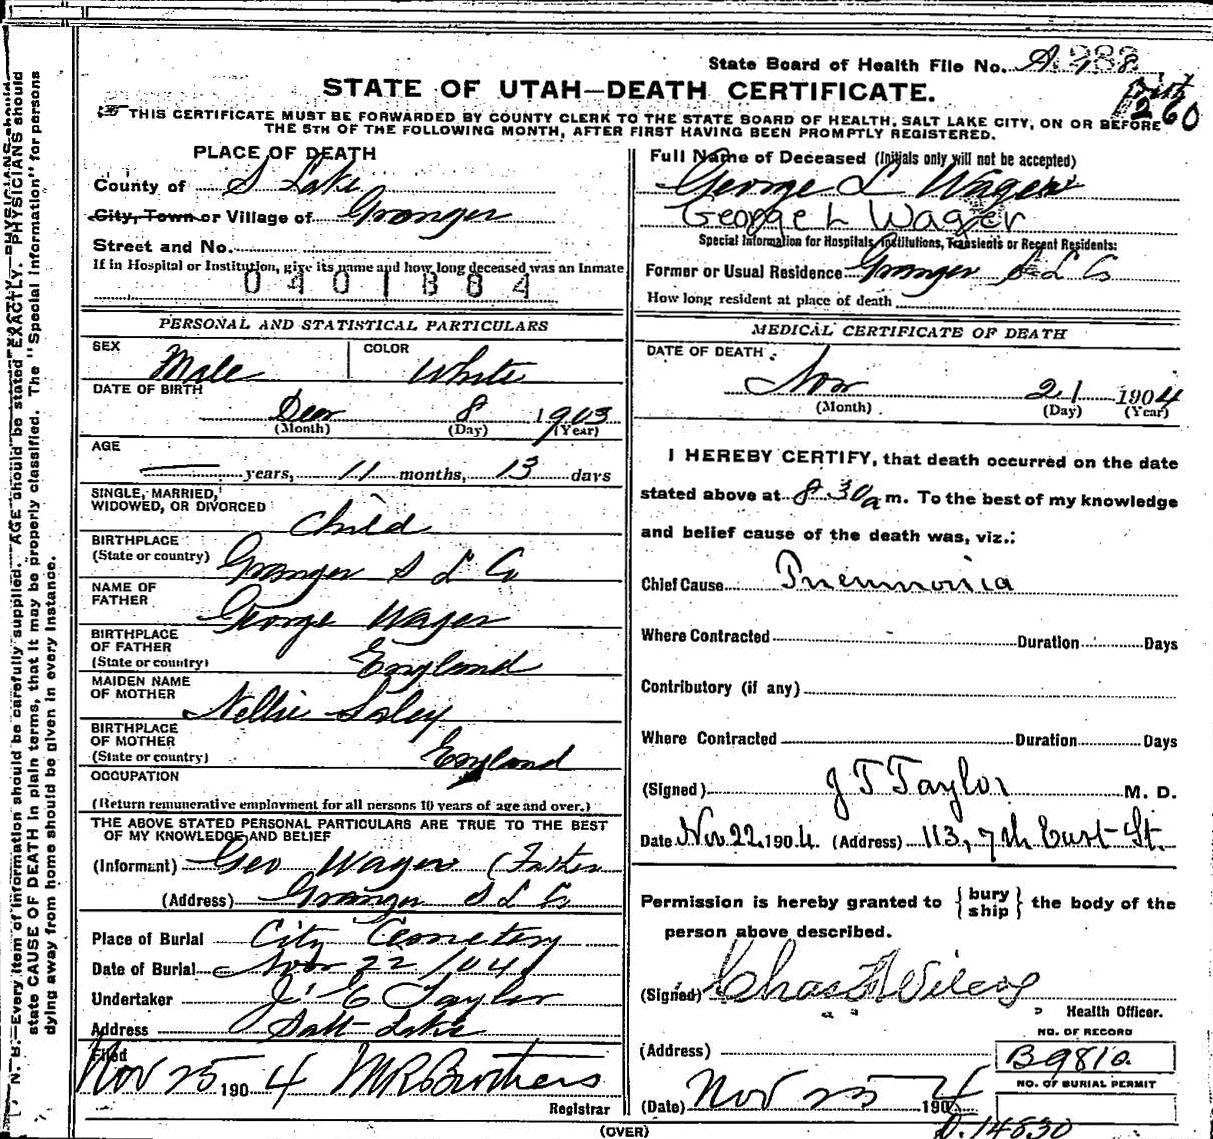 State Board of Health File No. A 288
STATE OF UTAH—DEATH CERTIFICATE.
260
THIS CERTIFICATE MUST BE FORWARDED BY COUNTY CLERK TO THE STATE BOARD OF HEALTH, SALT LAKE CITY, ON OR BEFORE
THE 5TH OF THE FOLLOWING MONTH, AFTER FIRST HAVING BEEN PROMPTLY REGISTERED.
PLACE OF DEATH
County of S Lake
City, Town or Village of Granger
Street and No.
If in Hospital or Institution, give its name and how long deceased was an Inmate
0401884
PERSONAL AND STATISTICAL PARTICULARS
SEX Male COLOR White
DATE OF BIRTH
Decr 8 1903
(Month) (Day) (Year)
AGE
— years, 11 months, 13 days
SINGLE, MARRIED,
WIDOWED, OR DIVORCED Child
BIRTHPLACE
(State or country) Granger S L Co
NAME OF
FATHER George Wager
BIRTHPLACE
OF FATHER
(State or country) England
MAIDEN NAME
OF MOTHER Nellie
BIRTHPLACE
OF MOTHER
(State or country) England
OCCUPATION
(Return remunerative employment for all persons 10 years of age and over.)
THE ABOVE STATED PERSONAL PARTICULARS ARE TRUE TO THE BEST
OF MY KNOWLEDGE AND BELIEF
(Informant) Geo Wager (Father
(Address) Granger S L Co
Place of Burial City Cemetery
Date of Burial Nov 22 1904
Undertaker Taylor
Address Salt Lake
Filed
Nov 25 1904 M R Brothers
Registrar
Full Name of Deceased (Initials only will not be accepted)
George L Wager
George L Wager
Special Information for Hospitals, Institutions, Transients or Recent Residents:
Former or Usual Residence Granger S L Co
How long resident at place of death
MEDICAL CERTIFICATE OF DEATH
DATE OF DEATH
Nov 21 1904
(Month) (Day) (Year)
I HEREBY CERTIFY, that death occurred on the date
stated above at 8 30 a m. To the best of my knowledge
and belief cause of the death was, viz.:
Chief Cause Pneumonia
Where Contracted Duration Days
Contributory (if any)
Where Contracted Duration Days
(Signed) J T Taylor M. D.
Date Nov. 22, 1904. (Address) 113, 7th East St.
Permission is hereby granted to { bury ship } the body of the
person above described.
(Signed) Chas Wilcox
Health Officer.
NO. OF RECORD
(Address) B9810
NO. OF BURIAL PERMIT
(Date) Nov 25 1904
D. 14530
(OVER)
N. B.—Every item of information should be carefully supplied. AGE should be stated EXACTLY. PHYSICIANS should
state CAUSE OF DEATH in plain terms, that it may be properly classified. The "Special Information" for persons
dying away from home should be given in every instance.